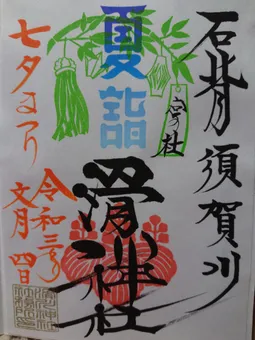 石背 須賀川
夏詣
神社
七夕まつり
令和三年
文月 四日